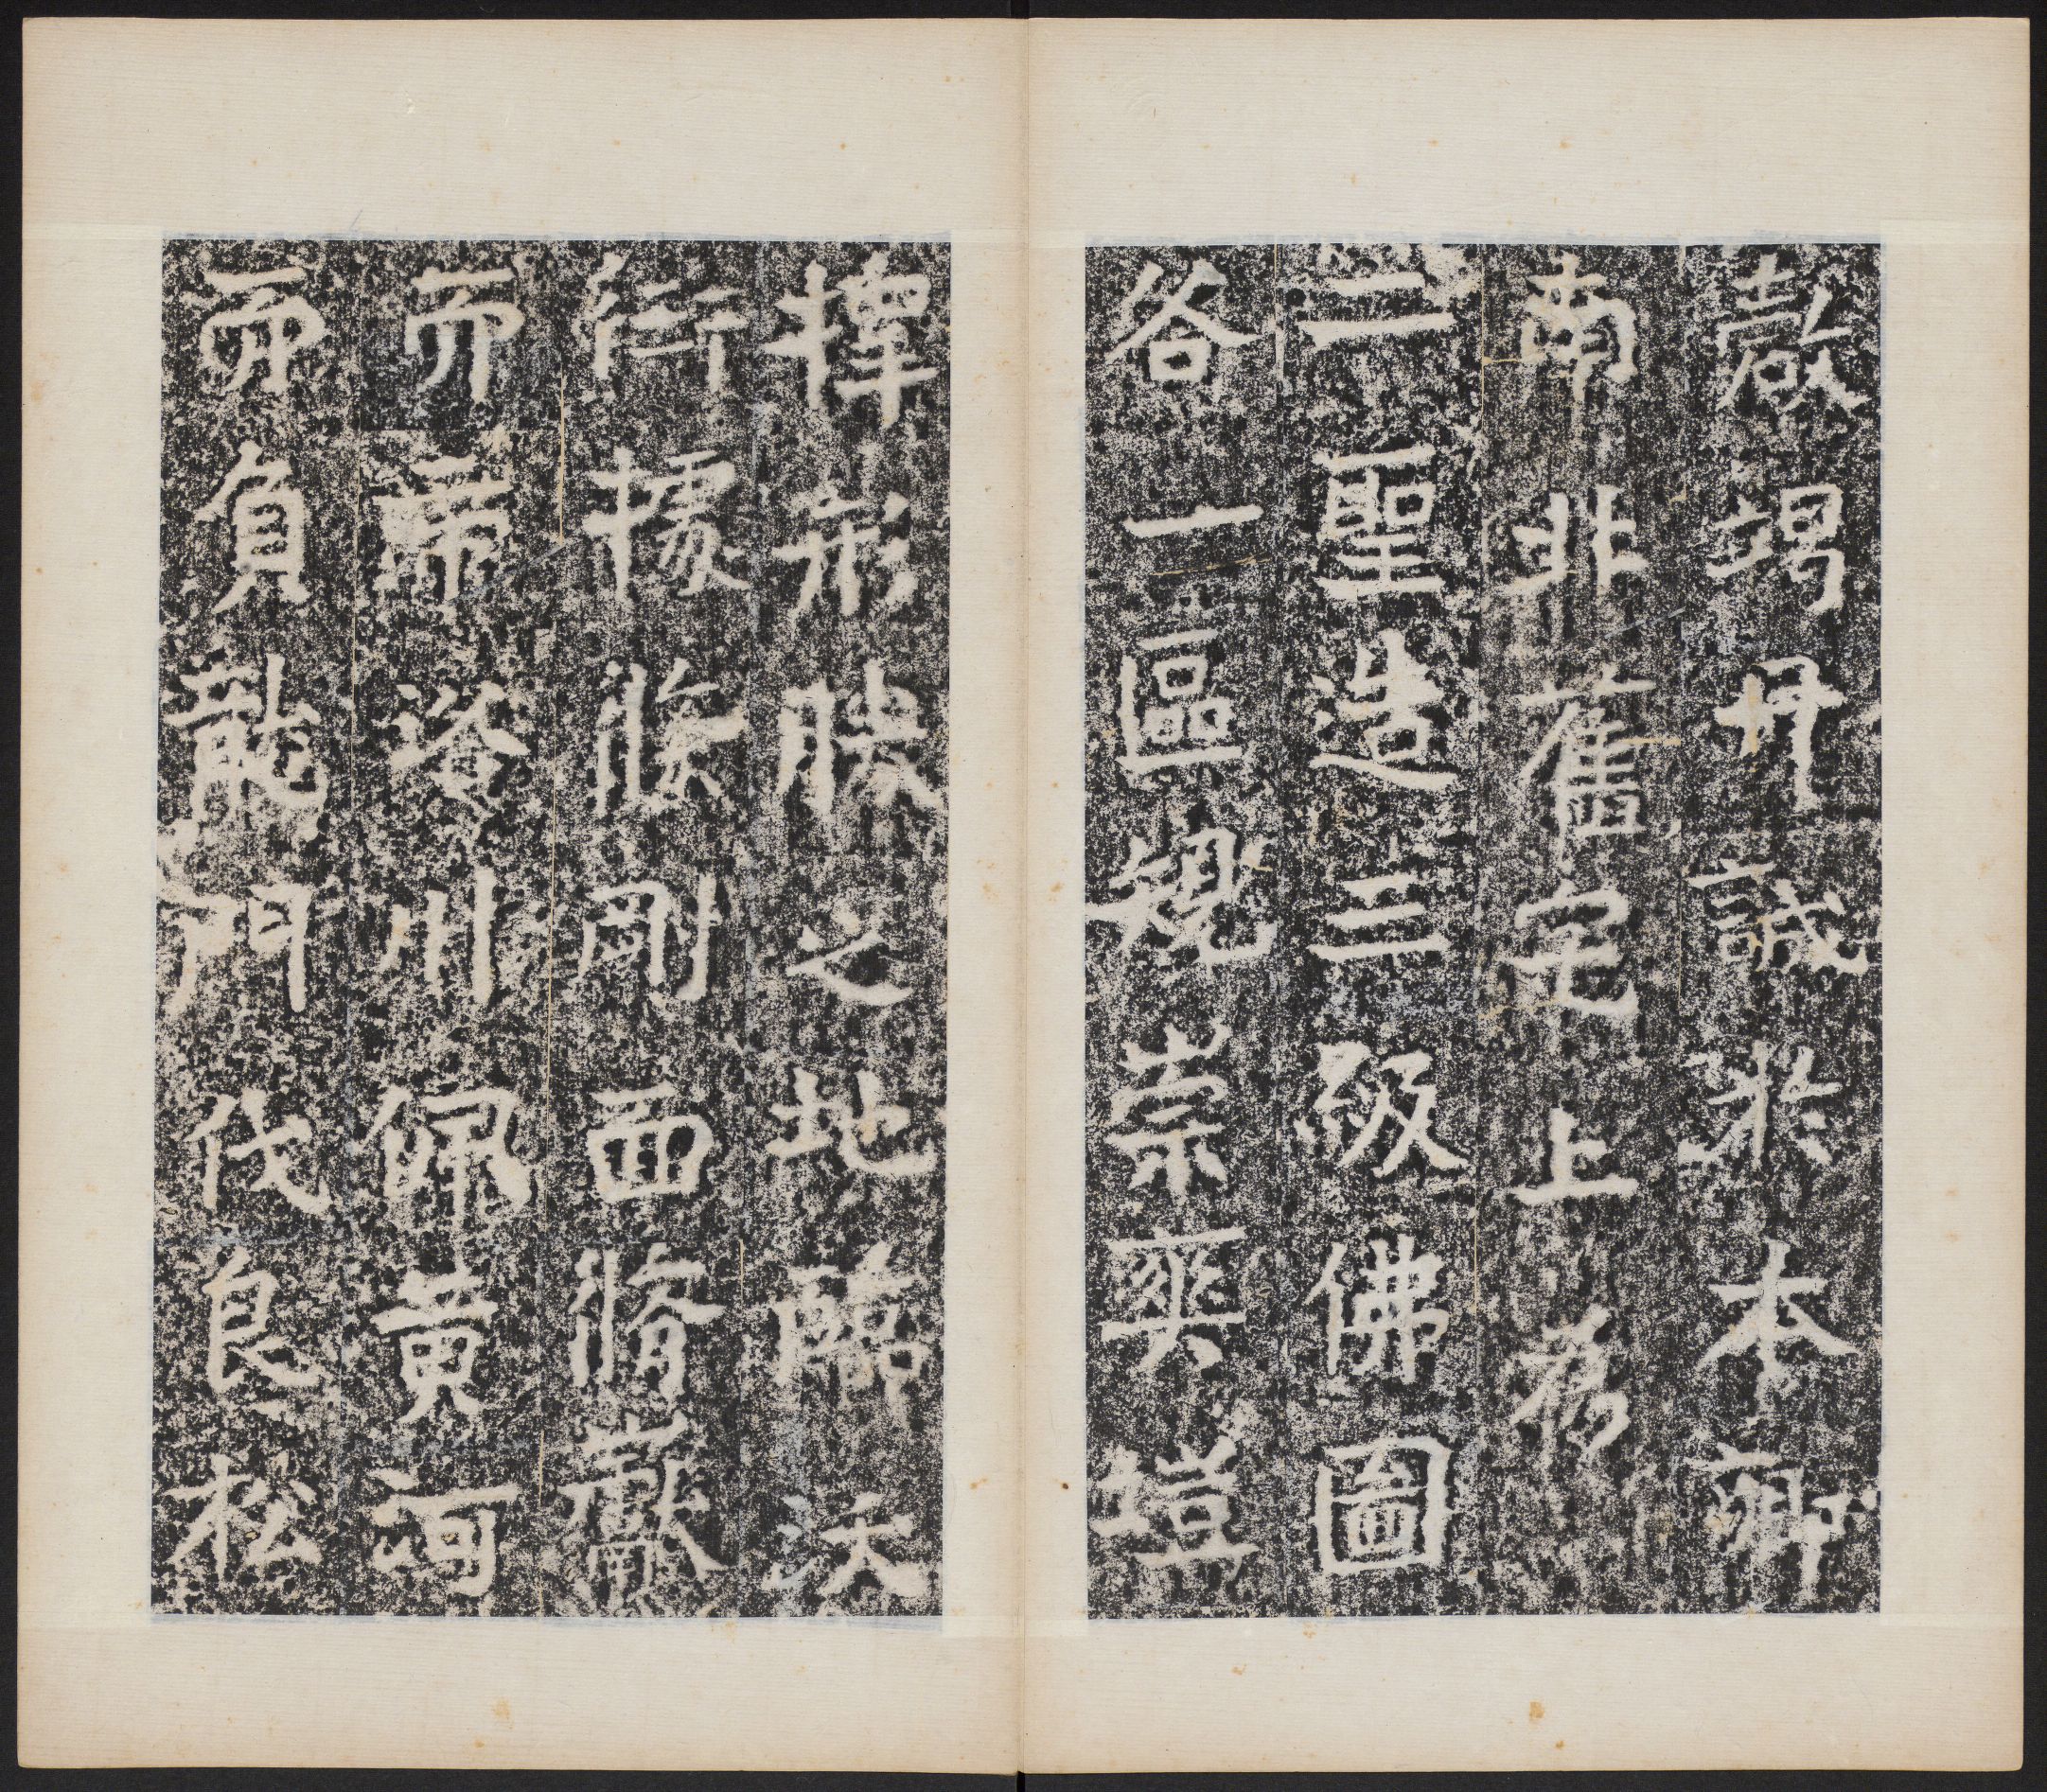 罄竭丹誠於本鄉
南北舊宅上為
二聖造三級佛圖
各一區規崇爽塏
擇形勝之地臨沃
衍據條剛面脩巘
而帶洛川佩黃河
而負龍門伐良松